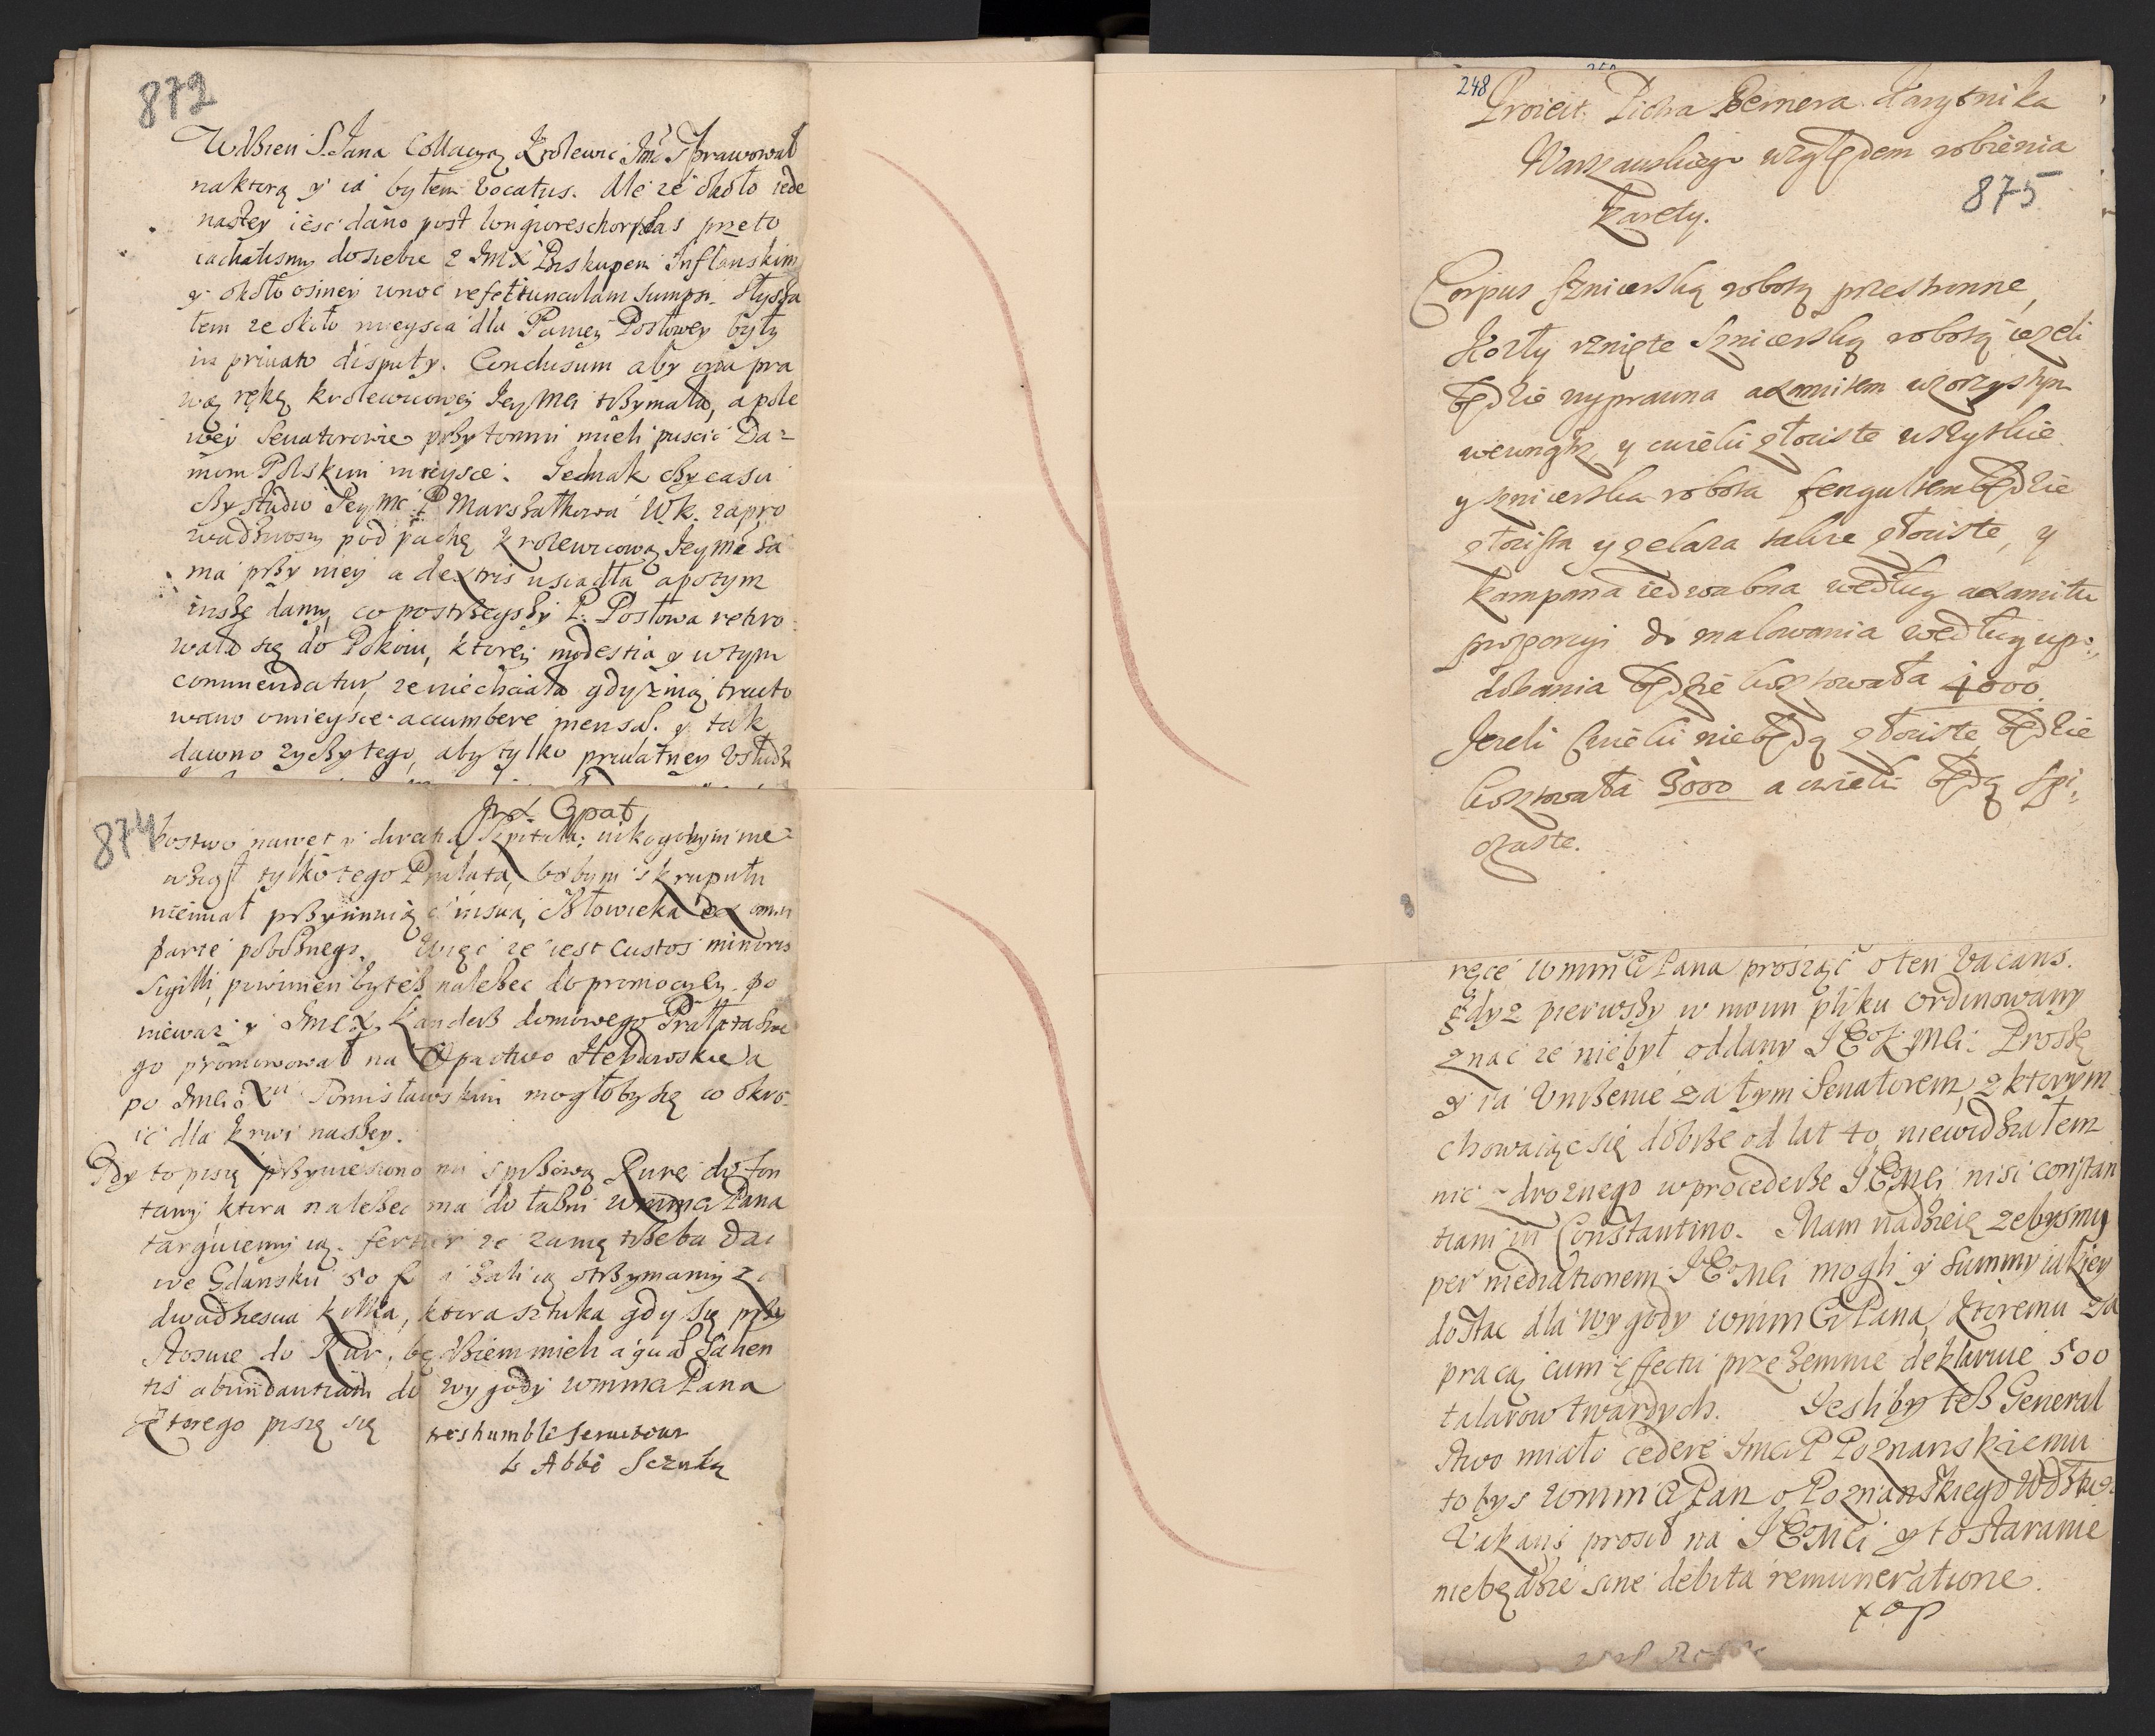 872
WDzien S. Jana Collacyą Krolewic Jmć Sprawował
naktorą y ia byłem vocatus. Ale że około iede
nastey ieść dano post longiores preto
iachalismy dosiebie z JmX Biskupem Inflanskim
y około osmey wnoc refectiunculam sumpsi. słysza
łem że około mieysca dla Paniey Posłowey były
in privato disputy. Conclusum aby ona pra
wą ręką krolewicowey Jey Mci trzymała, a pole
wey Senatorowie przytomni mieli puscić Da=
mom Polskim mieysce. Jednak czy casu
czy studio Jey Mć P Marszałkowa W.K. zapro
wadziwszy pod pachę Krolewicową Jeymć sa
ma przy niey a dextris usiadła apotym
insze damy, co postrzegszy P. Posłowa retiro
wała się do Pokoiu, ktorey modestia y wtym
commendatur, że niechciała gdy znią trakto
wano omieysce accumbere mensae. y tak
dawno życzy tego, aby tylko prywatney
874
JmX Opat
bostwo nawet y Szpitala; nikogobym nie=
wziął tylko tego Prałata, bobym skrupułu
niemiał przyimuiąc insuą człowieka ex omni
parte pobożnego. Więc że iest Custos minoris
Sigilli, powinien byteż należec do promocyey. po
nieważ y JmcX Kanclerz domowego Prałata swe
go promowował na Opactwo Hebdowskie a
po JmciXu Tomisławskim mogłoby się co okro=
ić dla krwi naszey.
Gdy to piszę przyniesiono mi spiżową Rurę do fon
tany, ktora należec ma do łazni WmmMci Pana
targuiemy ią. fertur że zanię trzeba dać
we Gdansku 50 ieżeli ią otrzymamy za
dwadziescia kilka, ktora sztuka gdy się przy
stosuie do Rur, będziem mieli aquae salien
tis abundantiam do wygody WmmMci Pana
Ktorego piszę się
treshumble serviteur
le Abbé Szczuka
248
Proiekt Piotra Bernera Karytnika
Warszauskiego względem robienia
875
Karety.
Corpus sznicerską robotą przestronne,
Kozły rznięte sznicerską robotą ieżeli
będzie wyprawna axamitem wzorzystym
wewngtz, y cwieki złociste wszytkie
y sznicerska robota fengultem będzie
złocista y żelaza także złociste, y
kampana iedwabna według axamitu
proporcyi do malowania według upo,
dobania będzie kosztowała 4000.
Jeżeli cwieki niebędą złociste, będzie
kosztowała 3000 a cwieki będą spi,
czaste.
ręce WmmMci Pana prosząc o ten Vacans.
gdyż pierwszy w moim pliku ordinowany
znać że niebył oddany JEX Mci. Proszę
y ia uniżenie za tym Senatorem, z ktorym
chowaiąc się dobrze od lat 40, niewidziałem
nic zdrożnego wprocederze JEoMci nisi constan
tiam in Constantino. Mam nadzieię żebysmy
per mediationem JEoMci mogli y summy iakiey
dostac dla wygody WmmMci Pana, ktoremu za
pracą cum effectu przezemnie deklaruie 500
talarow twardych. Jesliby też General
stwo miało cedere JmciP Poznanskiemu
tobys WmmMci Pan o Poznanskiego Wdztwo
Vakans prosił na JEoMci y to staranie
niebędzie sine debita remuneratione.